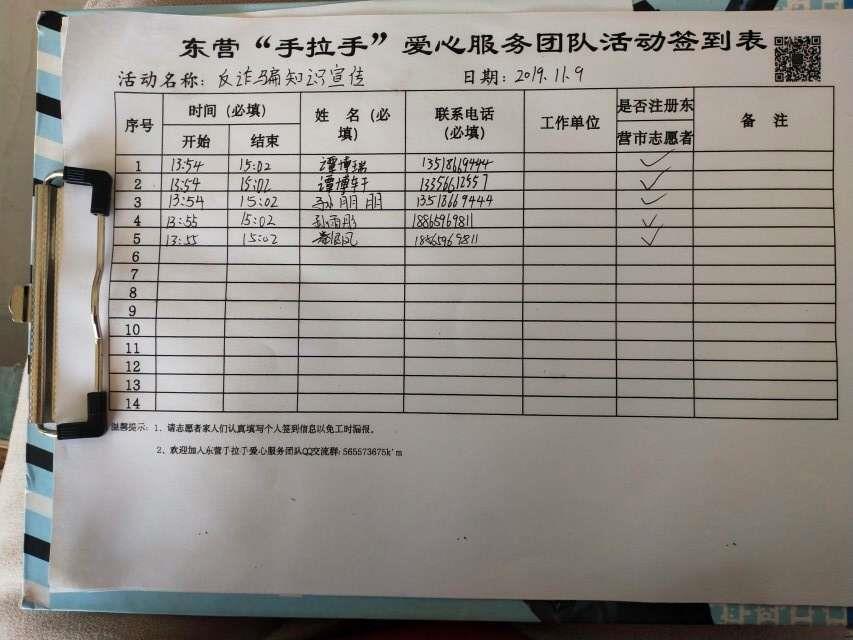 东营“手拉手”爱心服务团队活动签到表
活动名称：反诈骗知识宣传 日期：2019.11.9
序号 时间（必填） 开始 结束 姓 名（必填） 联系电话（必填） 工作单位 是否注册东营市志愿者 备 注
1 13:54 15:02 谭博瑞 13518669444 ✓
2 13:54 15:02 谭博轩 13356612557 ✓
3 13:54 15:02 孙朋朋 13518669444 ✓
4 13:55 15:02 孙雨彤 18865969811 ✓
5 13:55 15:02 18865969811 ✓
6
7
8
9
10
11
12
13
14
温馨提示：1、请志愿者家人们认真填写个人签到信息以免工时漏报。
2、欢迎加入东营手拉手爱心服务团队QQ交流群：565573675k'm